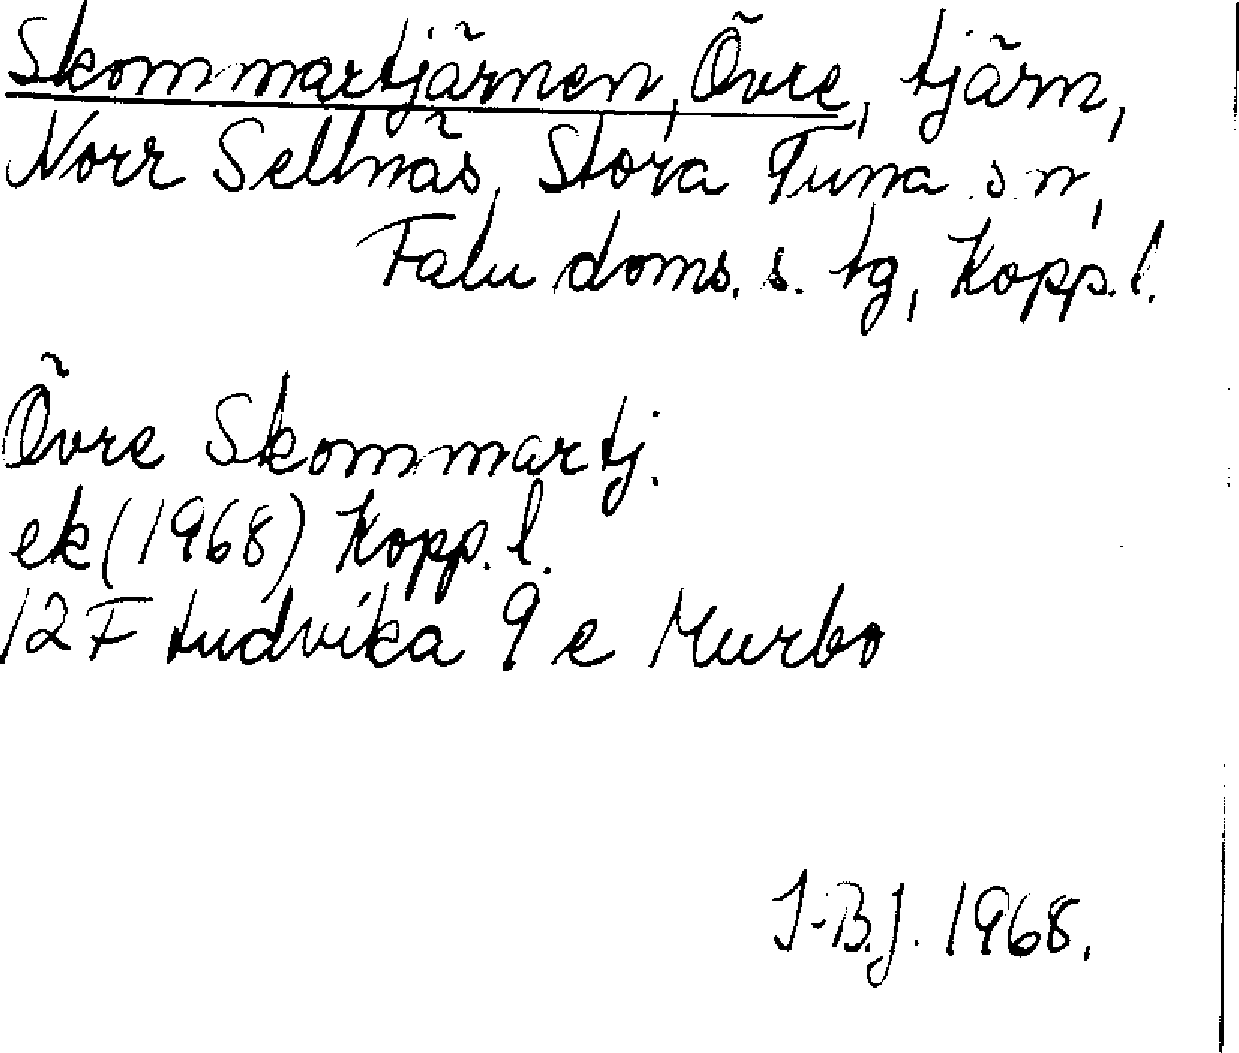 Skommartjärnen, Övre, tjärn,
Norr Sellnäs, Stora Tuna sn,
Falu doms. s. tg, Kopp. l.
Övre Skommartj.
ek (1968) Kopp. l.
12 F Ludvika 9 e Murbo
I-B.J. 1968.